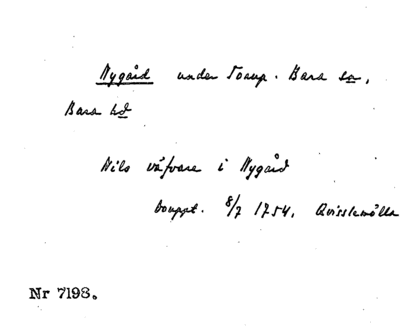 Nygård under Torup. Bara sn,
Bara hd
Nils väfvare i Nygård
bouppt. 8/7 1754. Qvisslemölla
Nr 7198.